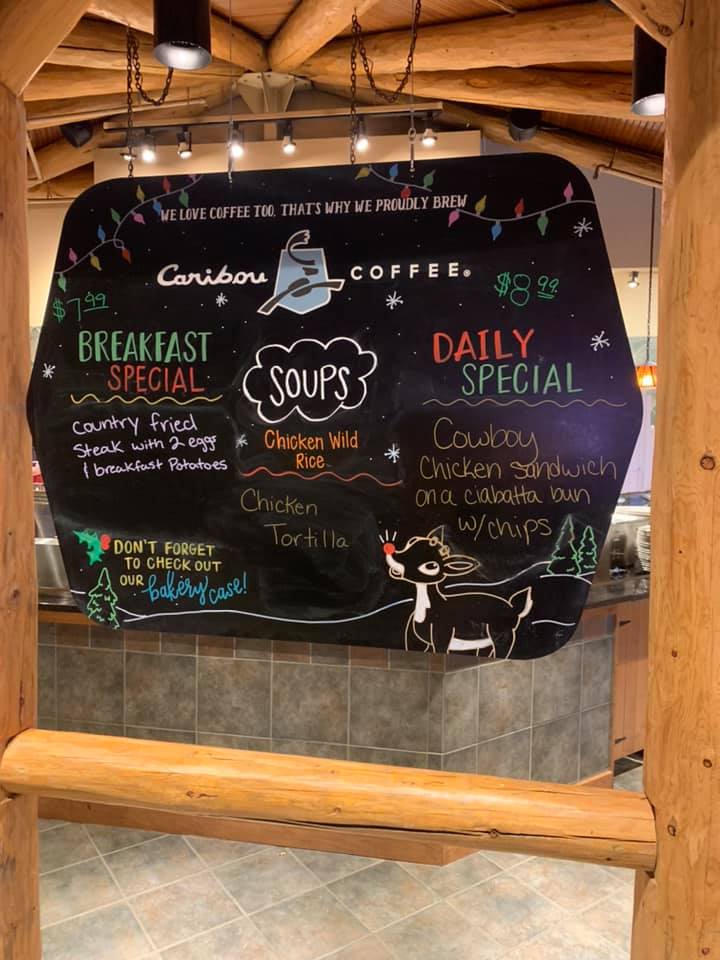 WE LOVE COFFEE TOO. THAT'S WHY WE PROUDLY BREW
Caribou COFFEE®
$7.99
BREAKFAST
SPECIAL
country fried
Steak with 2 eggs
& breakfast Potatoes
SOUPS
Chicken Wild
Rice
Chicken
Tortilla
$8.99
DAILY
SPECIAL
Cowboy
Chicken sandwich
on a ciabatta bun
w/chips
DON'T FORGET
TO CHECK OUT
OUR bakery case!